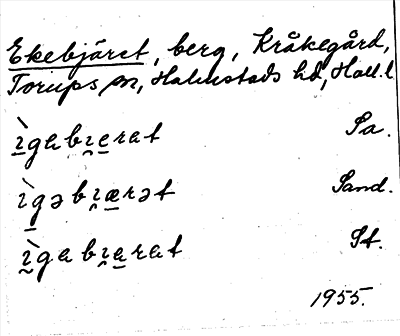 Ekebjäret, berg, Kråkegård,
Torups sn, Halmstads hd, Hall. l
ı̠̀gebı̯e̠rat Sa.
ı̠̀gəbı̯æ̠rət Sand.
ı̰̀gabı̯a̠rat St.
1955.